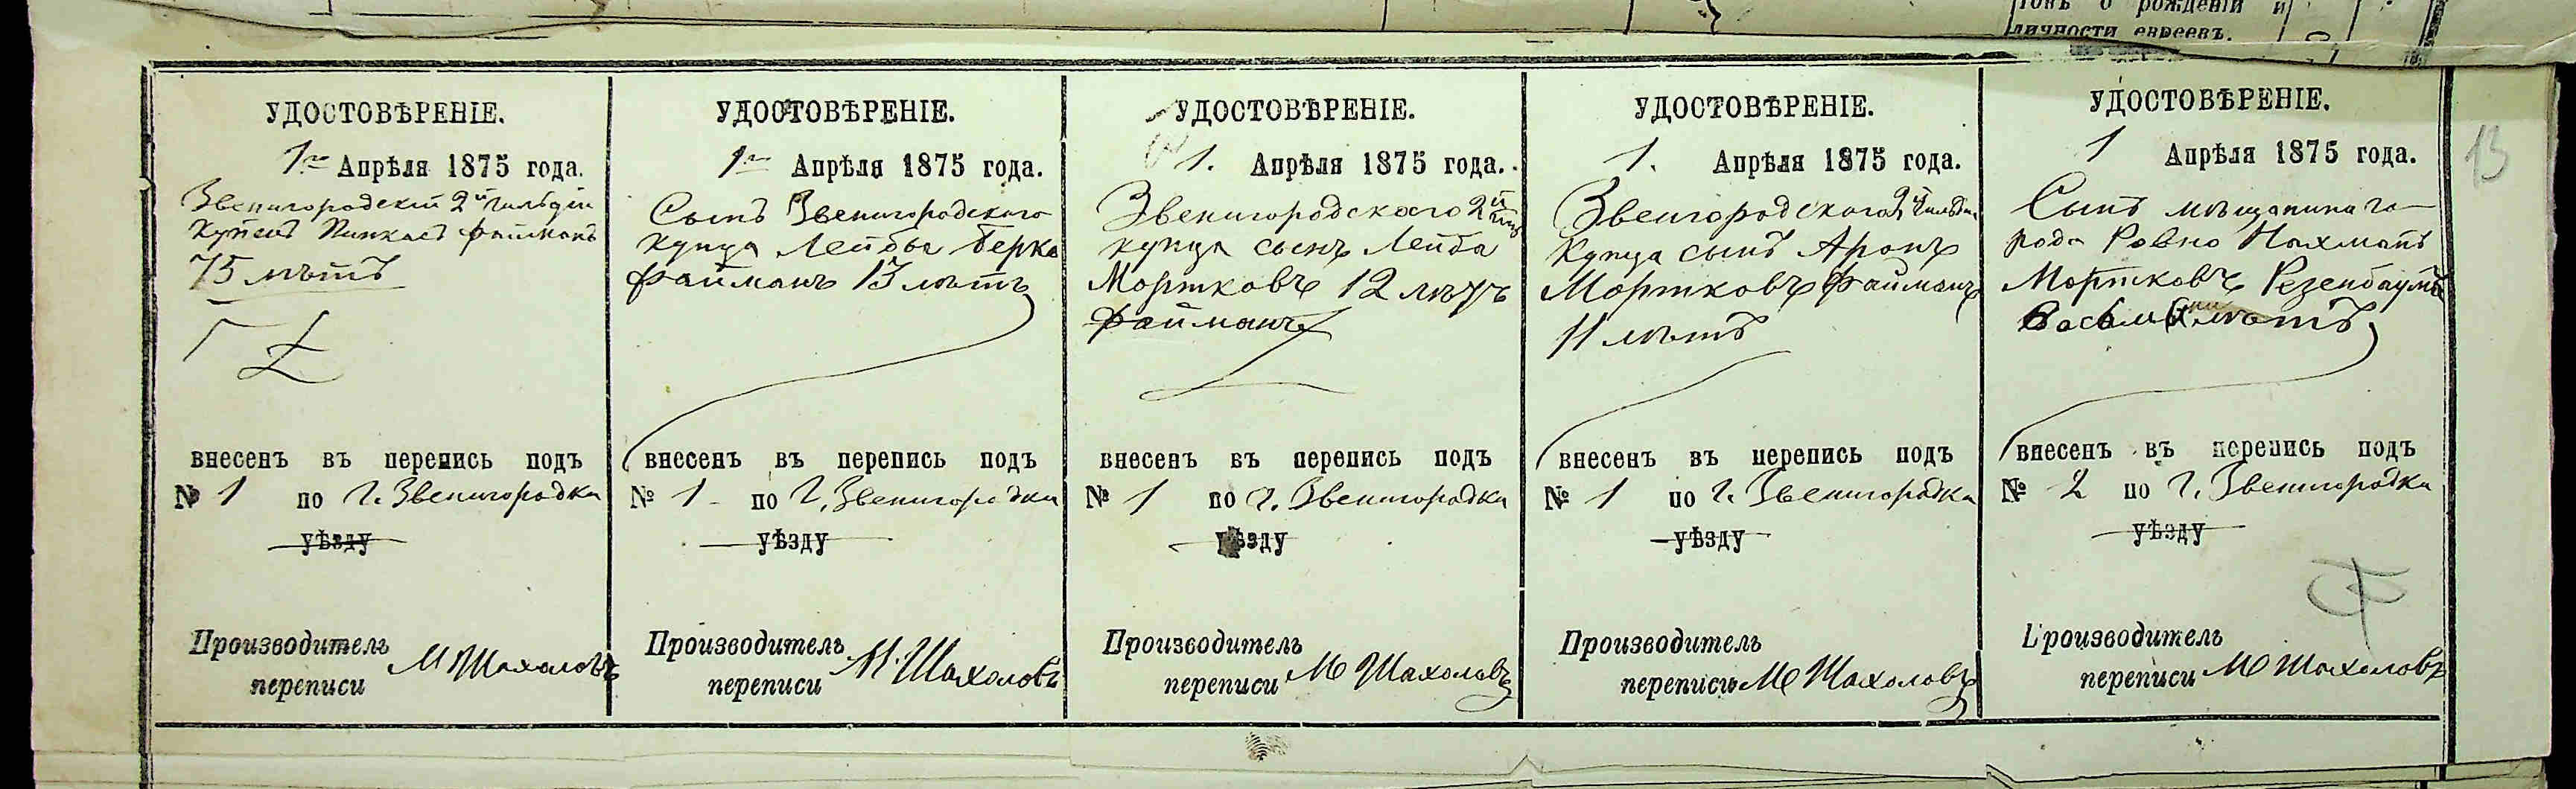 тонъ о рожденіи и
личности евреевъ.
13
УДОСТОВѢРЕНІЕ.
1го Апрѣля 1875 года.
Звенигородскій 2й гильдіи
купецъ Пинкасъ Файманъ
75 лѣтъ
внесенъ въ перепись подъ
№ 1 по г. Звенигородка
уѣзду
Производитель
переписи М Шахоловъ
УДОСТОВѢРЕНІЕ.
1го Апрѣля 1875 года.
Сынъ Звенигородского
купца Лейбы Берко
Файманъ 13 лѣтъ
внесенъ въ перепись подъ
№ 1 по г. Звенигородки
уѣзду
Производитель
переписи М. Шахоловъ
УДОСТОВѢРЕНІЕ.
1. Апрѣля 1875 года.
Звенигородского 2й
купца сынъ Лейба
Мортковъ 12 лѣтъ
Файманъ
внесенъ въ перепись подъ
№ 1 по г. Звенигородка
уѣзду
Производитель
переписи М Шахоловъ
УДОСТОВѢРЕНІЕ.
1. Апрѣля 1875 года.
Звенгородского 2й гильдіи
купца сынъ Аронъ
Мортковъ Файманъ
11 лѣтъ
внесенъ въ перепись подъ
№ 1 по г. Звенигородка
уѣзду
Производитель
переписи М Шахоловъ
УДОСТОВѢРЕНІЕ.
1 Апрѣля 1875 года.
Сынъ мѣщанина го-
рода Ровно Нахманъ
Мортковъ Резенбаумъ
лѣтъ
внесенъ въ перепись подъ
№ 2 по г. Звенигородка
уѣзду
Производитель
переписи М Шахоловъ